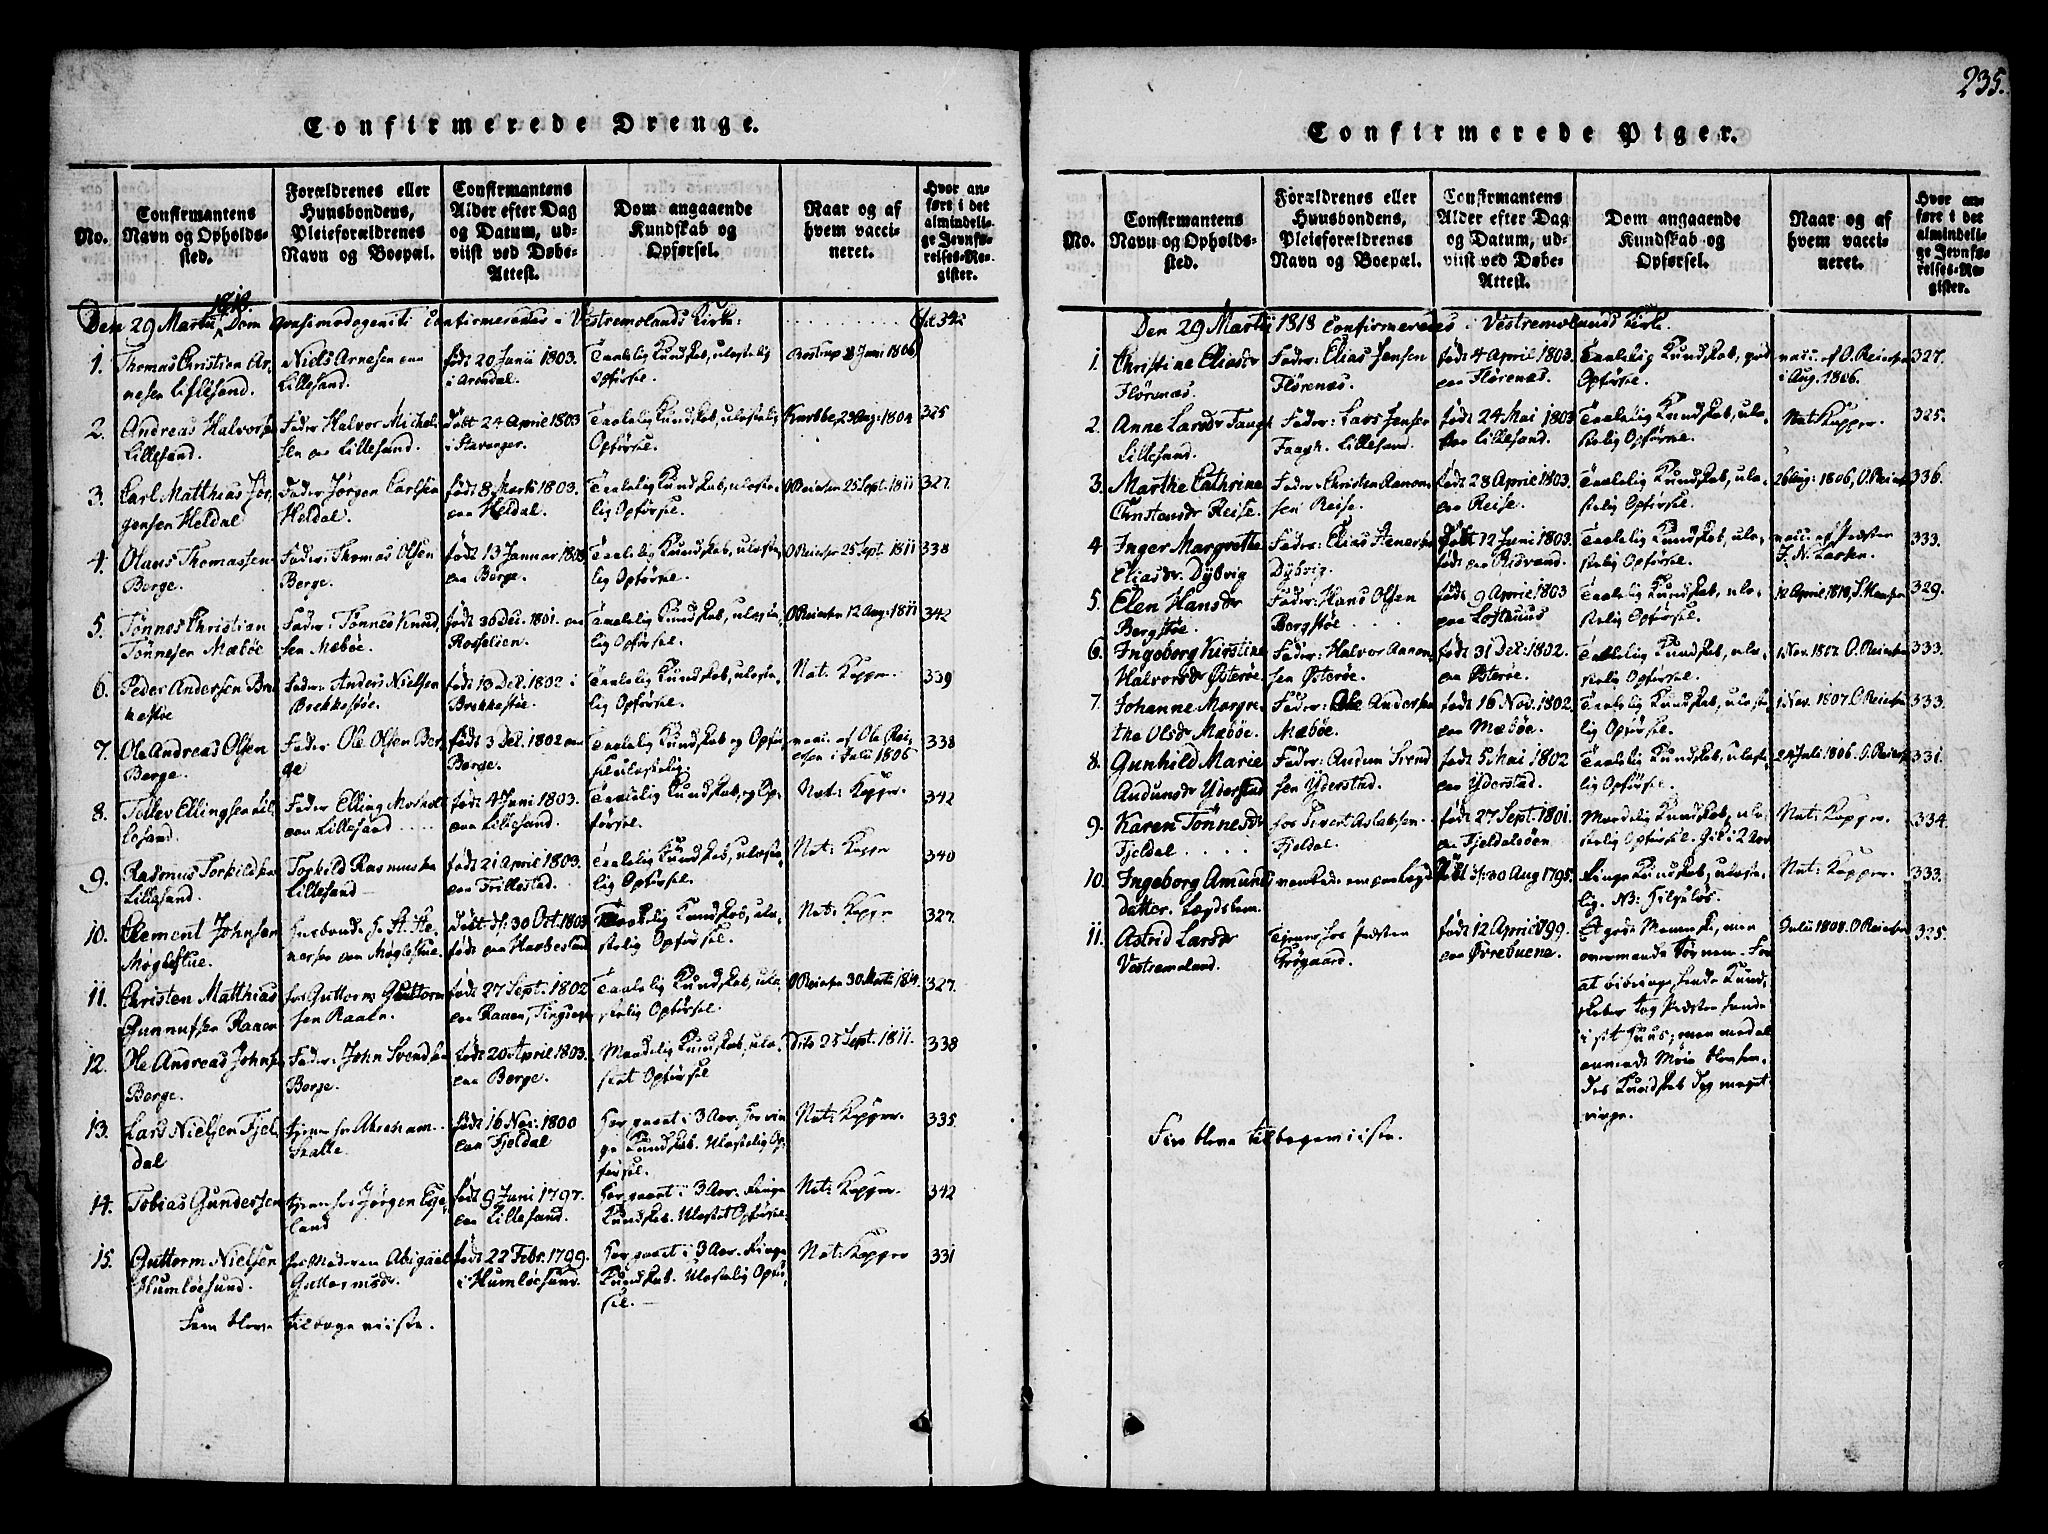 235.
Confirmerede Drenge.
No.
Confirmantens
Navn og Opholds-
sted.
Forældrenes eller
Huusbondens,
Pleieforældrenes
Navn og Boepæl.
Confirmantens
Alder efter Dag
og Datum, ud-
viist ved Døbe-
Attest.
Dom angaaende
Kundskab og
Opførsel.
Naar og af
hvem vacci-
neret.
Hvor an-
ført i det
almindeli-
ge Jevnfø-
relses-Re-
gister.
1818.
Den 29 Martii, Dom Qvasimodogeniti Confirmeredes i Vestremolands Kirke:
342
1.
Thomas Christian Ar-
nesen Lillesand.
Niels Arnesen paa
Lillesand.
født 20 Junii 1803.
i Arendal.
Taalelig Kundskab, ulastelig
Opførsel.
Bostrup 8 Juni 1806
2.
Andreas Halvorsen
Lillesand.
Fader Halvor Michel-
sen paa Lillesand.
Døbt 24 April 1803
i Stavanger.
Taalelig Kundskab, ulastelig
Opførsel.
23 Aug: 1804
325
3.
Carl Matthias Jør-
gensen Heldal
Fader Jørgen Carlsen
Heldal.
født 8 Marts 1803.
paa Heldal.
Taalelig Kundskab, ulaste-
lig Opførsel.
O Reiersen 25 Sept. 1811
327.
4.
Olaus Thomassen
Berge.
Fader: Thomas Olsen
Berge.
født 13 Januar 1803
paa Berge.
Taalelig Kundskab, ulaste-
lig Opførsel.
O Reiersen 25 Sept. 1811
338
5.
Tønnes Christian
Tønnesen Mæbøe
Fader: Tønnes Knud
sen Mæbøe.
født 30 Dec. 1801. paa
Rosselien.
Taalelig Kundskab, ulaste-
lig Opførsel.
O Reiersen 12 Aug: 1811
342
6.
Peder Andersen Bre
kestøe
Fader: Anders Nielsen
Brekkestøe.
født 13 Dec. 1802 i
Brekkestøe.
Taalelig Kundskab, ulaste-
lig Opførsel.
Nat: Kopper.
339
7.
Ole Andreas Olsen
Berge.
Fader Ole Olsen Ber
ge
født 3 Dec. 1802 paa
Berge.
Taalelig Kundskab og Opfør
sel ulastelig.
vacc. af Ole Rei-
ersen i Juli 1806
338
8.
Tollev Ellingsen Lil-
lesand.
Fader Elling
paa Lillesand
født 4 Juni 1803.
paa Lillesand.
Taalelig Kundskab, og Op-
førsel.
Nat: Kopper.
342
9.
Rasmus Torkildsen
Lillesand.
Torkild Rasmussen
Lillesand
født 21 April 1803.
paa Trillestad.
Taalelig Kundskab, ulaste-
lig Opførsel.
Nat: Kopper
340
10.
Clement Johnsen
Møglestue.
Huusbonde
nersen paa Møglestue.
Døbt 30 Oct. 1803
født paa
Taalelig Kundskab, ula-
stelig Opførsel.
Nat: Kopper
327.
11.
Christen Matthias
Gunnufsen Raaen
hos Guttorm Guttorm
sen Raaen.
født 27 Sept. 1802
paa Raaen,
Taalelig Kundskab, ula-
stelig Opførsel.
O Reiersen 30 Marts 1814.
327.
12.
Ole Andreas Johnsen
Berge.
Fader John Svendsen
Berge.
født 20 April 1803.
paa Berge.
Maadelig Kundskab, ula-
stet Opførsel
Dito 25 Sept. 1811.
338
13.
Lars Nielsen Fjel-
dal
tjener hos Abraham
født 16 Nov: 1800
paa Fjeldal
har gaaet i 3 Aar. har rin
ge Kundskab. Ulastelig Op-
førsel.
Nat: Kopper.
335
14.
Tobias Gundersen
tjener hos Jørgen Ege-
land
født 9 Juni 1797.
paa Lillesand.
har gaaet i 3 Aar. Ringe
Kundskab. Ulastet Opførsel.
Nat: Kopper.
342
15.
Guttorm Nielsen
Humløesund.
hos Moderen Abigaæl
Guttormsdr.
født 22 Febr. 1799.
i Humløesund.
har gaaet i 3 Aar. Ringe
Kundskab. Ulastelig Opfør
sel.
Nat: Kopper
331
Fem bleve tilbageviiste.
Confirmerede Piger.
No.
Confirmantens
Navn og Opholds-
sted.
Forældrenes eller
Huusbondens,
Pleieforældrenes
Navn og Boepæl.
Confirmantens
Alder efter Dag
og Datum, ud-
viist ved Døbe-
Attest.
Dom angaaende
Kundskab og
Opførsel.
Naar og af
hvem vacci-
neret.
Hvor an-
ført i det
almindeli-
ge Jevnfø-
relses-Re-
gister.
Den 29 Martii 1818 Confirmeredes i Vestremolands Kirke.
1.
Christine Eliasdr
Flørenæs.
Fader: Elias Jensen
Flørenæs.
født 4 April 1803.
paa Flørenæs.
Taalelig Kundskab, god
Opførsel.
vacc. af O. Reiersen
i Aug. 1806.
327.
2.
Anne Larsdr Faagh
Lillesand.
Fader: Lars Jensen
Faagh. Lillesand.
født 24 Mai 1803
paa Lillesand.
Taalelig Kundskab, ula-
stelig Opførsel.
Nat Kopper.
325.
3.
Marthe Cathrine
Christensdr Reise.
Fader: Christen Aanon
sen Reise.
født 28 April 1803.
paa Reise.
Taalelig Kundskab, ula-
stelig Opførsel.
26 Aug: 1806, O. Reiersen
336.
4
Inger Margrethe
Eliasdr. Dybvig
Fader: Elias
Dybvig.
Døbt 12 Juni 1803.
født paa Ridvand.
Taalelig Kundskab, ula-
stelig Opførsel.
vacc. af Præsten
J. N.
333.
5.
Elen Hansdr
Bergstøe.
Fader: Hans Olsen
Bergstøe
født 9 April 1803
paa Lofthuus
Taalelig Kundskab, ula-
stelig Opførsel.
12 April 1818, S. Hansen
329.
6.
Ingeborg Kirstine
Halvorsdr Østerøe.
Fader: Halvor Aanon
sen Østerøe.
født 31 Dec: 1802.
paa Østerøe.
Taalelig Kundskab, ula-
stelig Opførsel.
1 Nov. 1807. O. Reiersen
333.
7.
Johanne Margre
the Olsdr Mæbøe.
Fader: Ole Andersen
Mæbøe.
født 16 Nov. 1802.
paa Mæbøe.
Taalelig Kundskab, ulaste-
lig Opførsel.
1 Nov. 1807. O. Reiersen
333.
8.
Gunhild Marie
Audunsdr Yderstad
Fader: Audun Svend
sen Yderstad.
født 5 Mai 1802
paa Yderstad.
Taalelig Kundskab, ulaste-
lig Opførsel.
24 Juli 1806. O. Reiersen
331.
9.
Karen Tønnesdr
Fjeldal
hos Sivert Aslaksen
Fjeldal.
født 27 Sept. 1801.
paa Fjeldalsøen
Maadelig Kundskab, ula-
stelig Opførsel. Gik i 2 Aar
Nat: Kopper.
334.
10.
Ingeborg Amunds
datter. Lægdslem.
vankede omkring paa Lægd
Døbt 30 Aug 1795.
Ringe Kundskab, ulaste-
lig. NB:
Nat: Kopper.
333.
11.
Astrid Larsdr
Vestremoland.
Tjener hos Præsten
Krøgaard.
født 12 April 1799.
paa Øvrebuene.
Et godt Menneske, men
overmaade tør nem. For
at bibringe hende Kund-
skaber tog Præsten hende
i sit Huus; men med al
anvendt Møie blev hen-
des Kundskab dog meget
ringe.
Juli 1808. O Reiersen
325.
Fire bleve tilbageviiste.